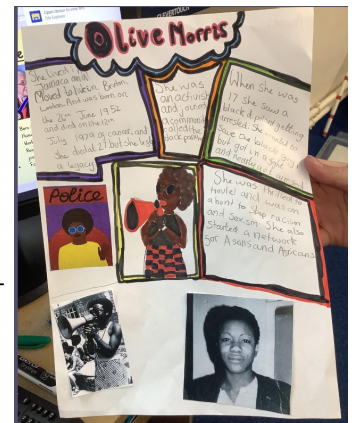 Olive Morris
She lived in
Jamaica and
Moved to live in Brixton,
London. And was born on
the 26th June 1952
and died on the 12th
July 1979 of cancer, and
She died at 27 but she left
a legacy
She was
an activist
and joined
a community
called the
black panthers
When she was
17 she saw a
black diplomat getting
arrested. She tried to
save the black guy
but got in a fight
and nearly got arrested
She was thrilled to
travel and was on
about to stop racism
and sexism. She also
started a network
for Asians and Africans
Police